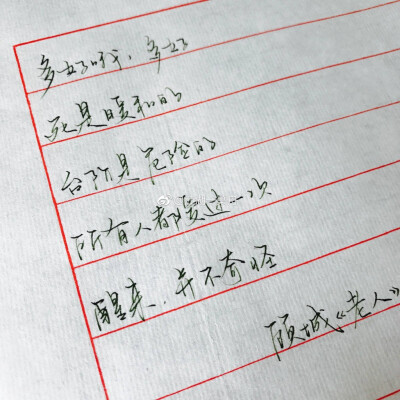 多好哦，多好
死是暖和的
台阶是危险的
所有人都过一次
醒来，并不奇怪
顾城《老人》